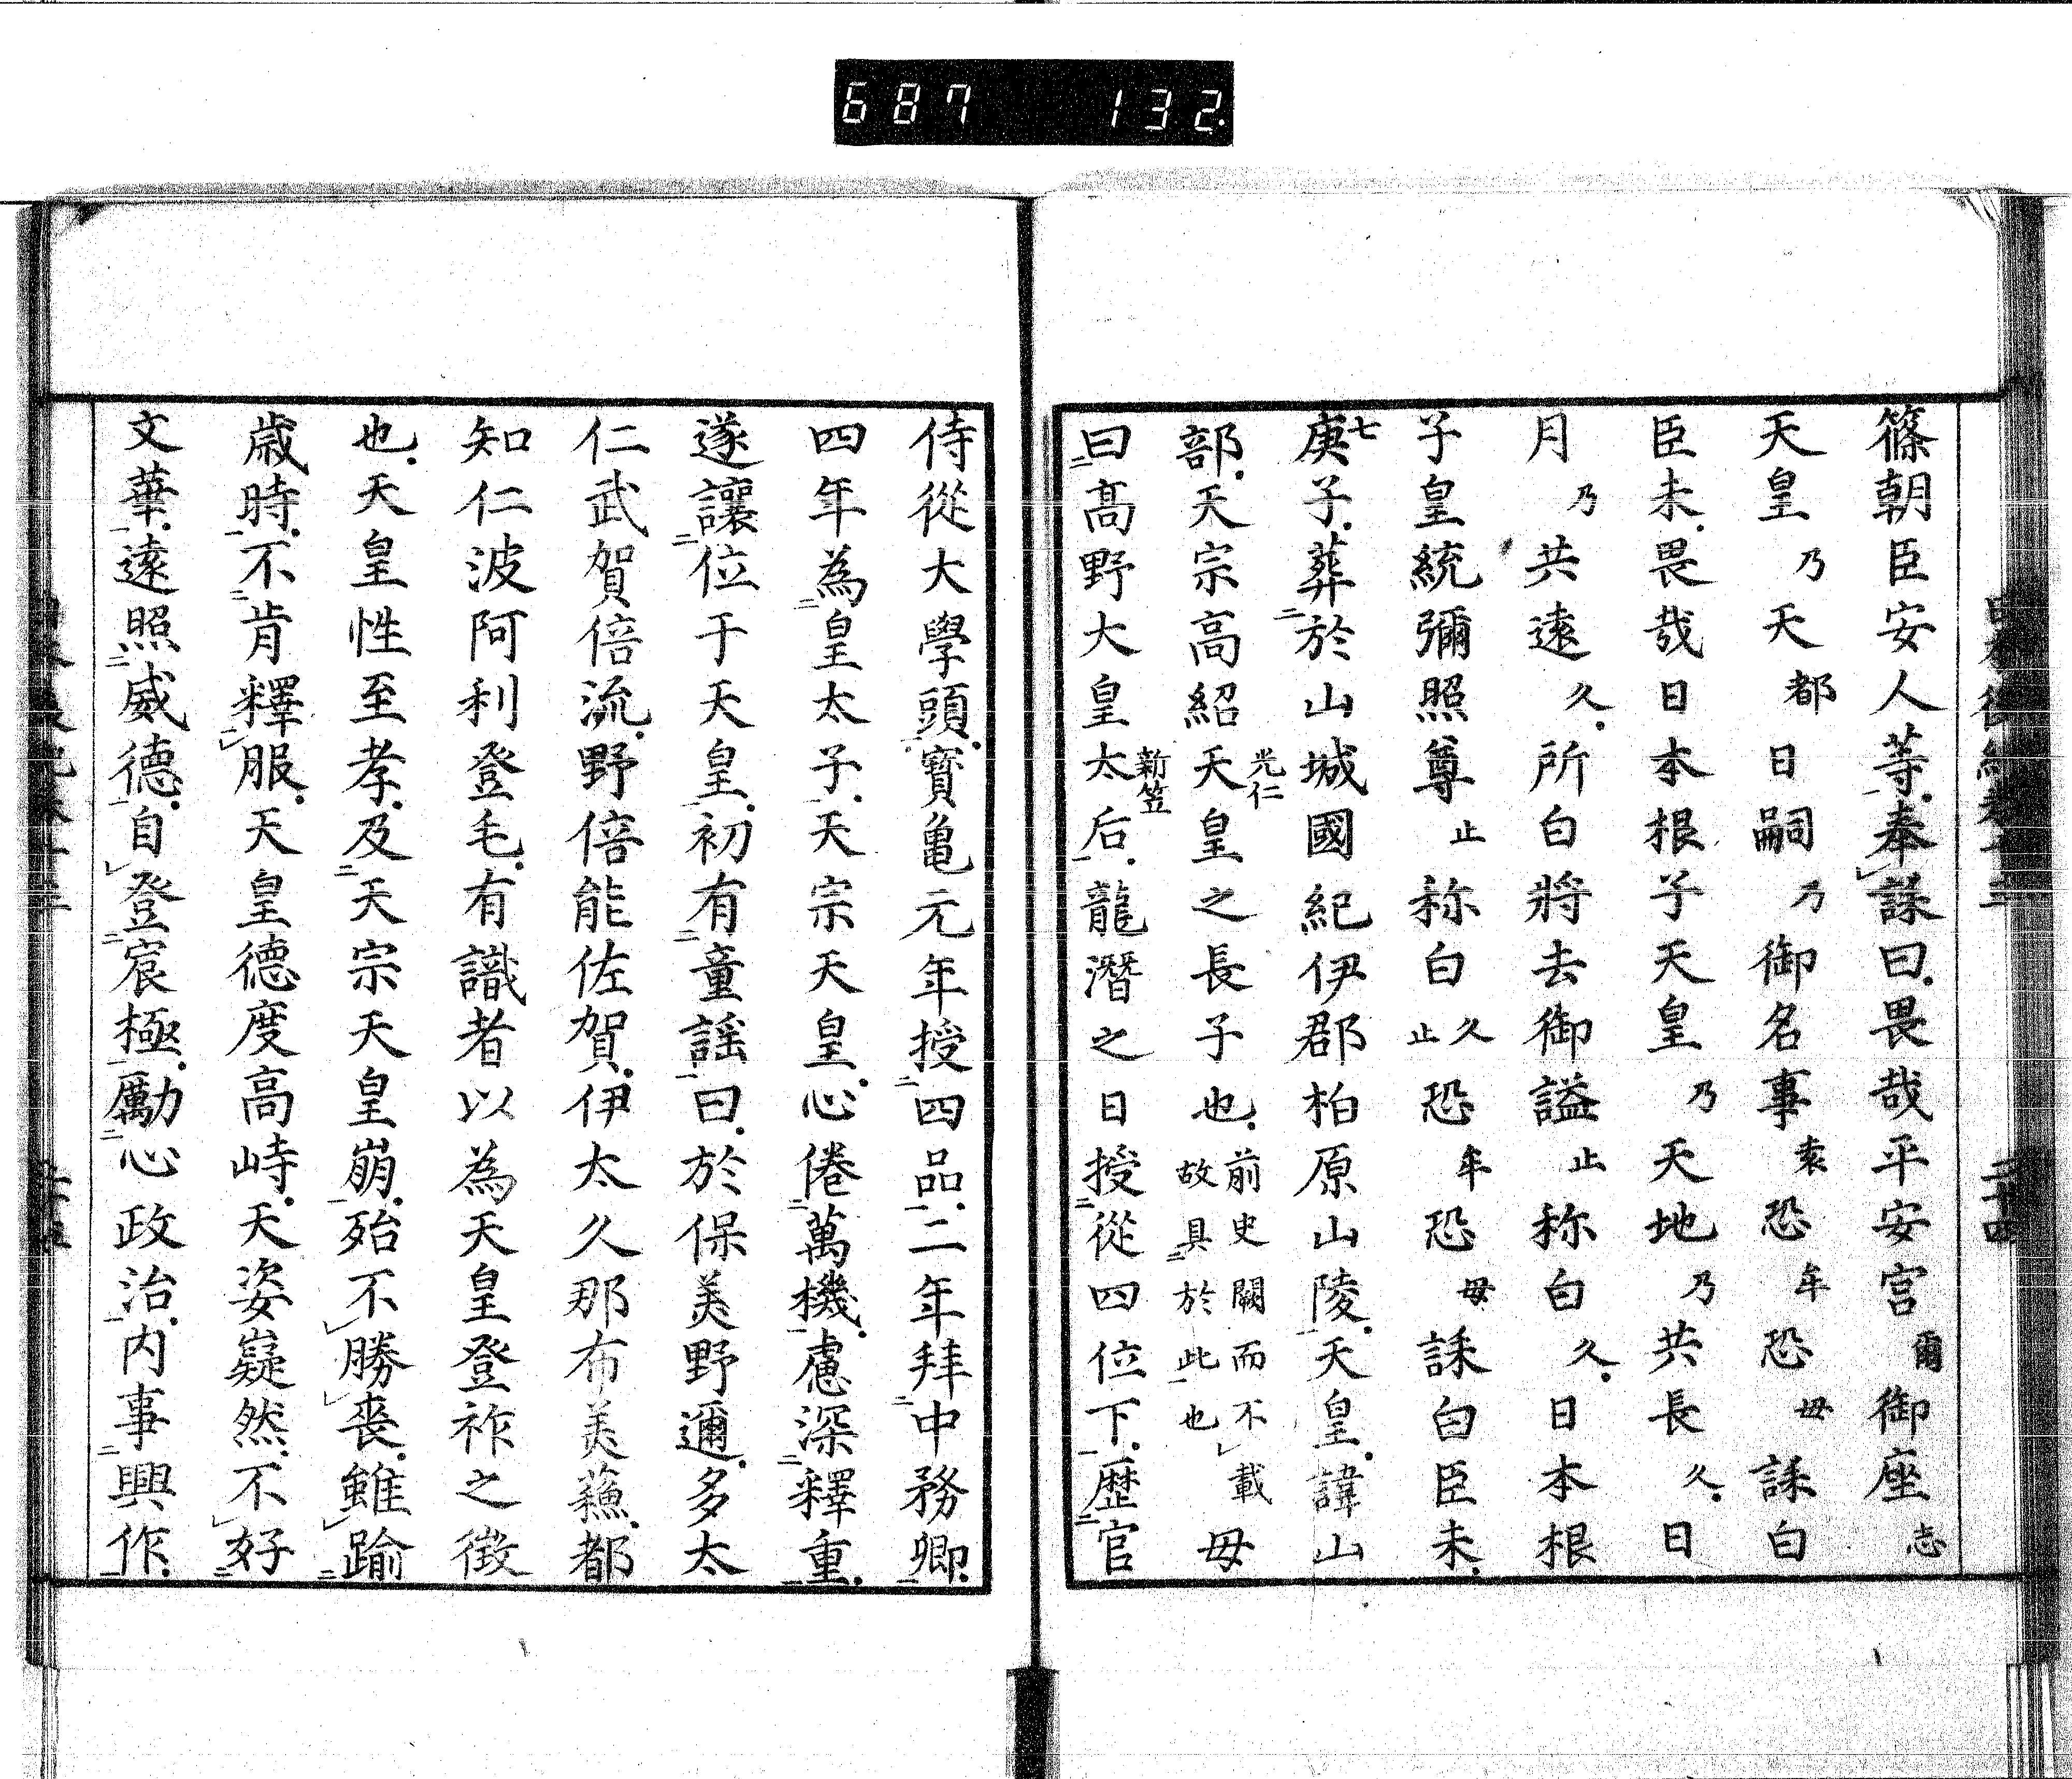 687 132
篠朝臣安人等奉誄曰畏哉平安宮爾御座志
天皇乃天都日嗣乃御名事袁恐牟恐毋誄白
臣未畏哉日本根子天皇乃天地乃共長久日
月乃共遠久所白將去御謚止称白久日本根
子皇統彌照尊止称白久止恐牟恐毋誄白臣未
七
庚子葬於山城國紀伊郡柏原山陵天皇諱山
部天宗高紹天皇之長子也前史闕而不載故具於此也母
光仁
曰高野大皇太后龍潛之日授從四位下歷官
新笠
侍從大學頭寶亀元年授四品二年拜中務卿
四年為皇太子天宗天皇心倦萬機慮深釋重
遂讓位于天皇初有童謡曰於保美野邇多太
仁武賀倍流野倍能佐賀伊太久那布美蘓都
知仁波阿利登毛有識者以為天皇登祚之徴
也天皇性至孝及天宗天皇崩殆不勝喪雖踰
歳時不肯釋服天皇德度高峙天姿嶷然不好
文華遠照威德自登宸極勵心政治内事興作